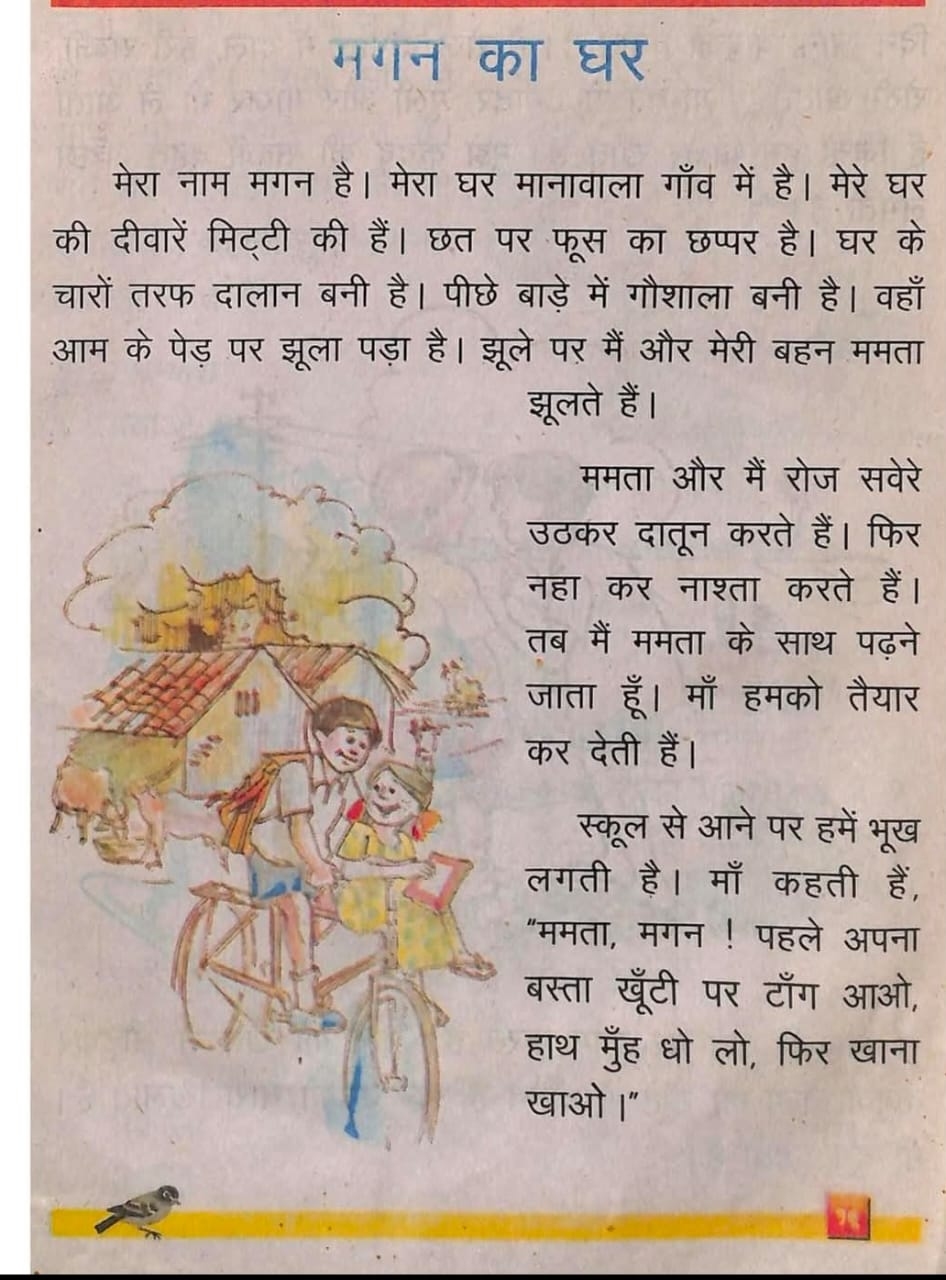 मगन का घर
मेरा नाम मगन है। मेरा घर मानावाला गाँव में है। मेरे घर
की दीवारें मिट्टी की हैं। छत पर फूस का छप्पर है। घर के
चारों तरफ दालान बनी है। पीछे बाड़े में गौशाला बनी है। वहाँ
आम के पेड़ पर झूला पड़ा है। झूले पर मैं और मेरी बहन ममता
झूलते हैं।
ममता और मैं रोज सवेरे
उठकर दातून करते हैं। फिर
नहा कर नाश्ता करते हैं।
तब मैं ममता के साथ पढ़ने
जाता हूँ। माँ हमको तैयार
कर देती हैं।
स्कूल से आने पर हमें भूख
लगती है। माँ कहती हैं,
“ममता, मगन ! पहले अपना
बस्ता खूँटी पर टाँग आओ,
हाथ मुँह धो लो, फिर खाना
खाओ।”